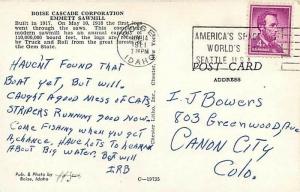 BOISE CASCADE CORPORATION
EMMETT SAWMILL
Built in 1917. On May 10, 1918 the first log
went through the saws. This
modern sawmill has an annual capacity of
110,000,000 board feet, the logs are
by Truck and Rail from the great forests of
the Gem State.
IDAHO
1961
PM
AMERICA'S SPACE
WORLD'S
SEATTLE U.S.A.
POST CARD
ADDRESS
HAVEN'T FOUND THAT
BOAT YET, BUT WILL.
CAUGHT A GOOD MESS OF CAT-
STRIPERS RUNNING GOOD NOW.
COME FISHING WHEN YOU GET
A CHANCE. HAVE LOTS TO LEARN
ABOUT BIG WATER, BUT WILL
IRB
I. J. BOWERS
803 GREENWOOD AVE
CANON CITY
COLO.
Pub. & Photo by
Boise, Idaho
C-19725